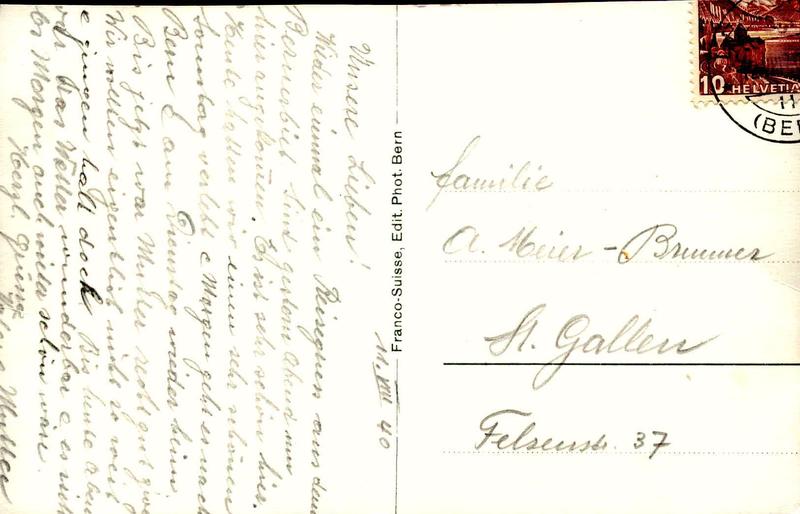 11. VIII 40
Unsere Lieben!
Wieder einmal ein Reisegruss aus dem
Bernerbiet. Sind gestern Abend nun
hier angekommen. Es ist sehr schön hier.
Heute haben wir einen sehr schönen
Sonntag verlebt & Morgen geht es nach
Bern & am Dienstag wieder heim.
Bis jetzt war Mutter recht gut
Wir wollten eigentlich nicht so weit
& gingen halt doch. Bis heute Abend
war das Wetter wunderbar &
Morgen auch wieder schön wäre.
Herzl. Grüsse
Franco-Suisse, Edit. Phot. Bern
10 HELVETIA
11
(BER
Familie
A. Meier-Brunner
St. Gallen
Felsenstr. 37